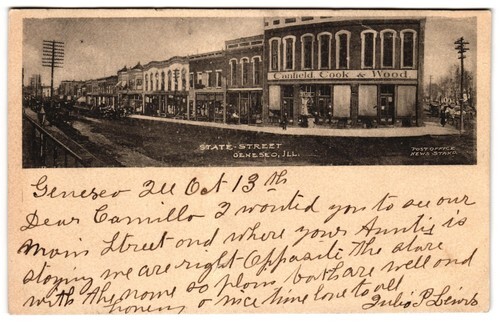 Canfield, Cook & Wood
STATE-STREET
GENESEO, ILL.
POST OFFICE
NEWS STAND
Geneseo Ill Oct 13th
Dear Camillo I wanted you to see our
Main Street and where your Auntis is
staying we are right Opposite the store
with the name so plain both are well and
having a nice time love to all
Julia P Lewis